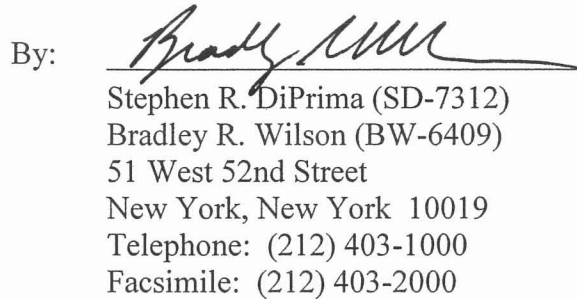 By: Bradly Wilson
Stephen R. DiPrima (SD-7312)
Bradley R. Wilson (BW-6409)
51 West 52nd Street
New York, New York 10019
Telephone: (212) 403-1000
Facsimile: (212) 403-2000